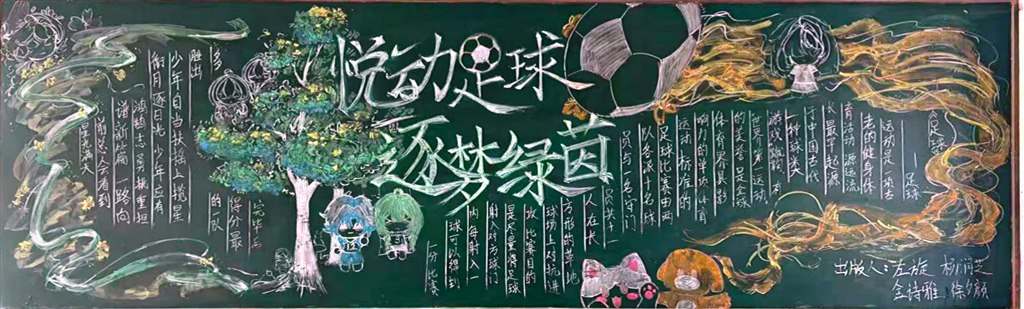 悦动足球
逐梦绿茵
《足球》
——足球
运动是一项古
老的健身体
育活动 源远流
长 最早起源
于中国古代
一种球类
游戏蹴鞠 有
世界第一运动
的美誉 是全球
体育界具影
响力的单项体育
运动 标准的
足球比赛由两
队各派十名球
员与一名守门
员共十一
人在长
方形的草地
球场上对抗进
攻 比赛目的
是尽量将足球
射入对方球门
内 每射入一
球可以得到
一分 比赛
完毕后
得分最
多
的一队
胜出
少年自当扶摇上揽星
衔月逐日光 少年应有
鸿鹄志 勇挑重担
谱新篇 一路向
前 总会看到
星光满天
出版人:左旋
金诗雅